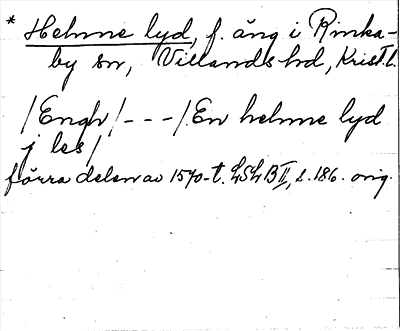 * Helmne lyd, f. äng i Rinka-
by sn, Villands hd, Krist. l.
/Engh/ - - - /. En helmne lyd
j les/
förra delen av 1570-t. LSLB II, s. 186. orig.